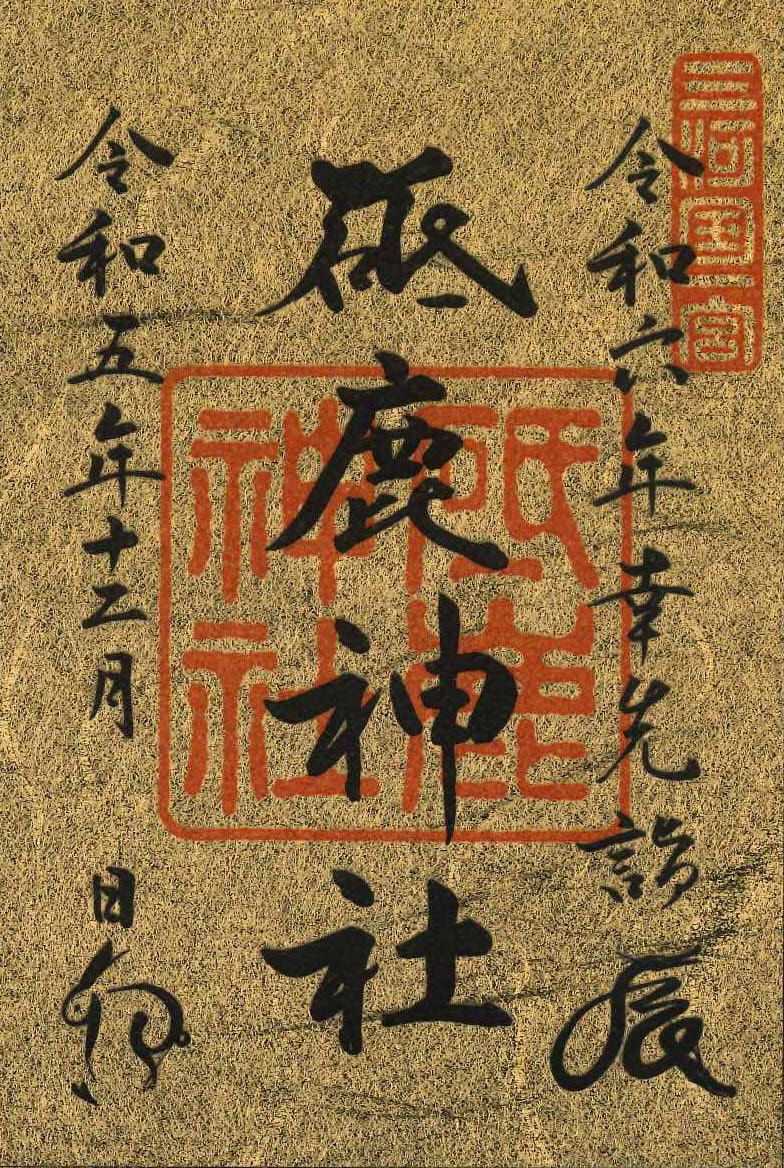 三河國一宮
令和六年幸先詣 辰
砥鹿神社
砥鹿神社
令和五年十二月 日 卯